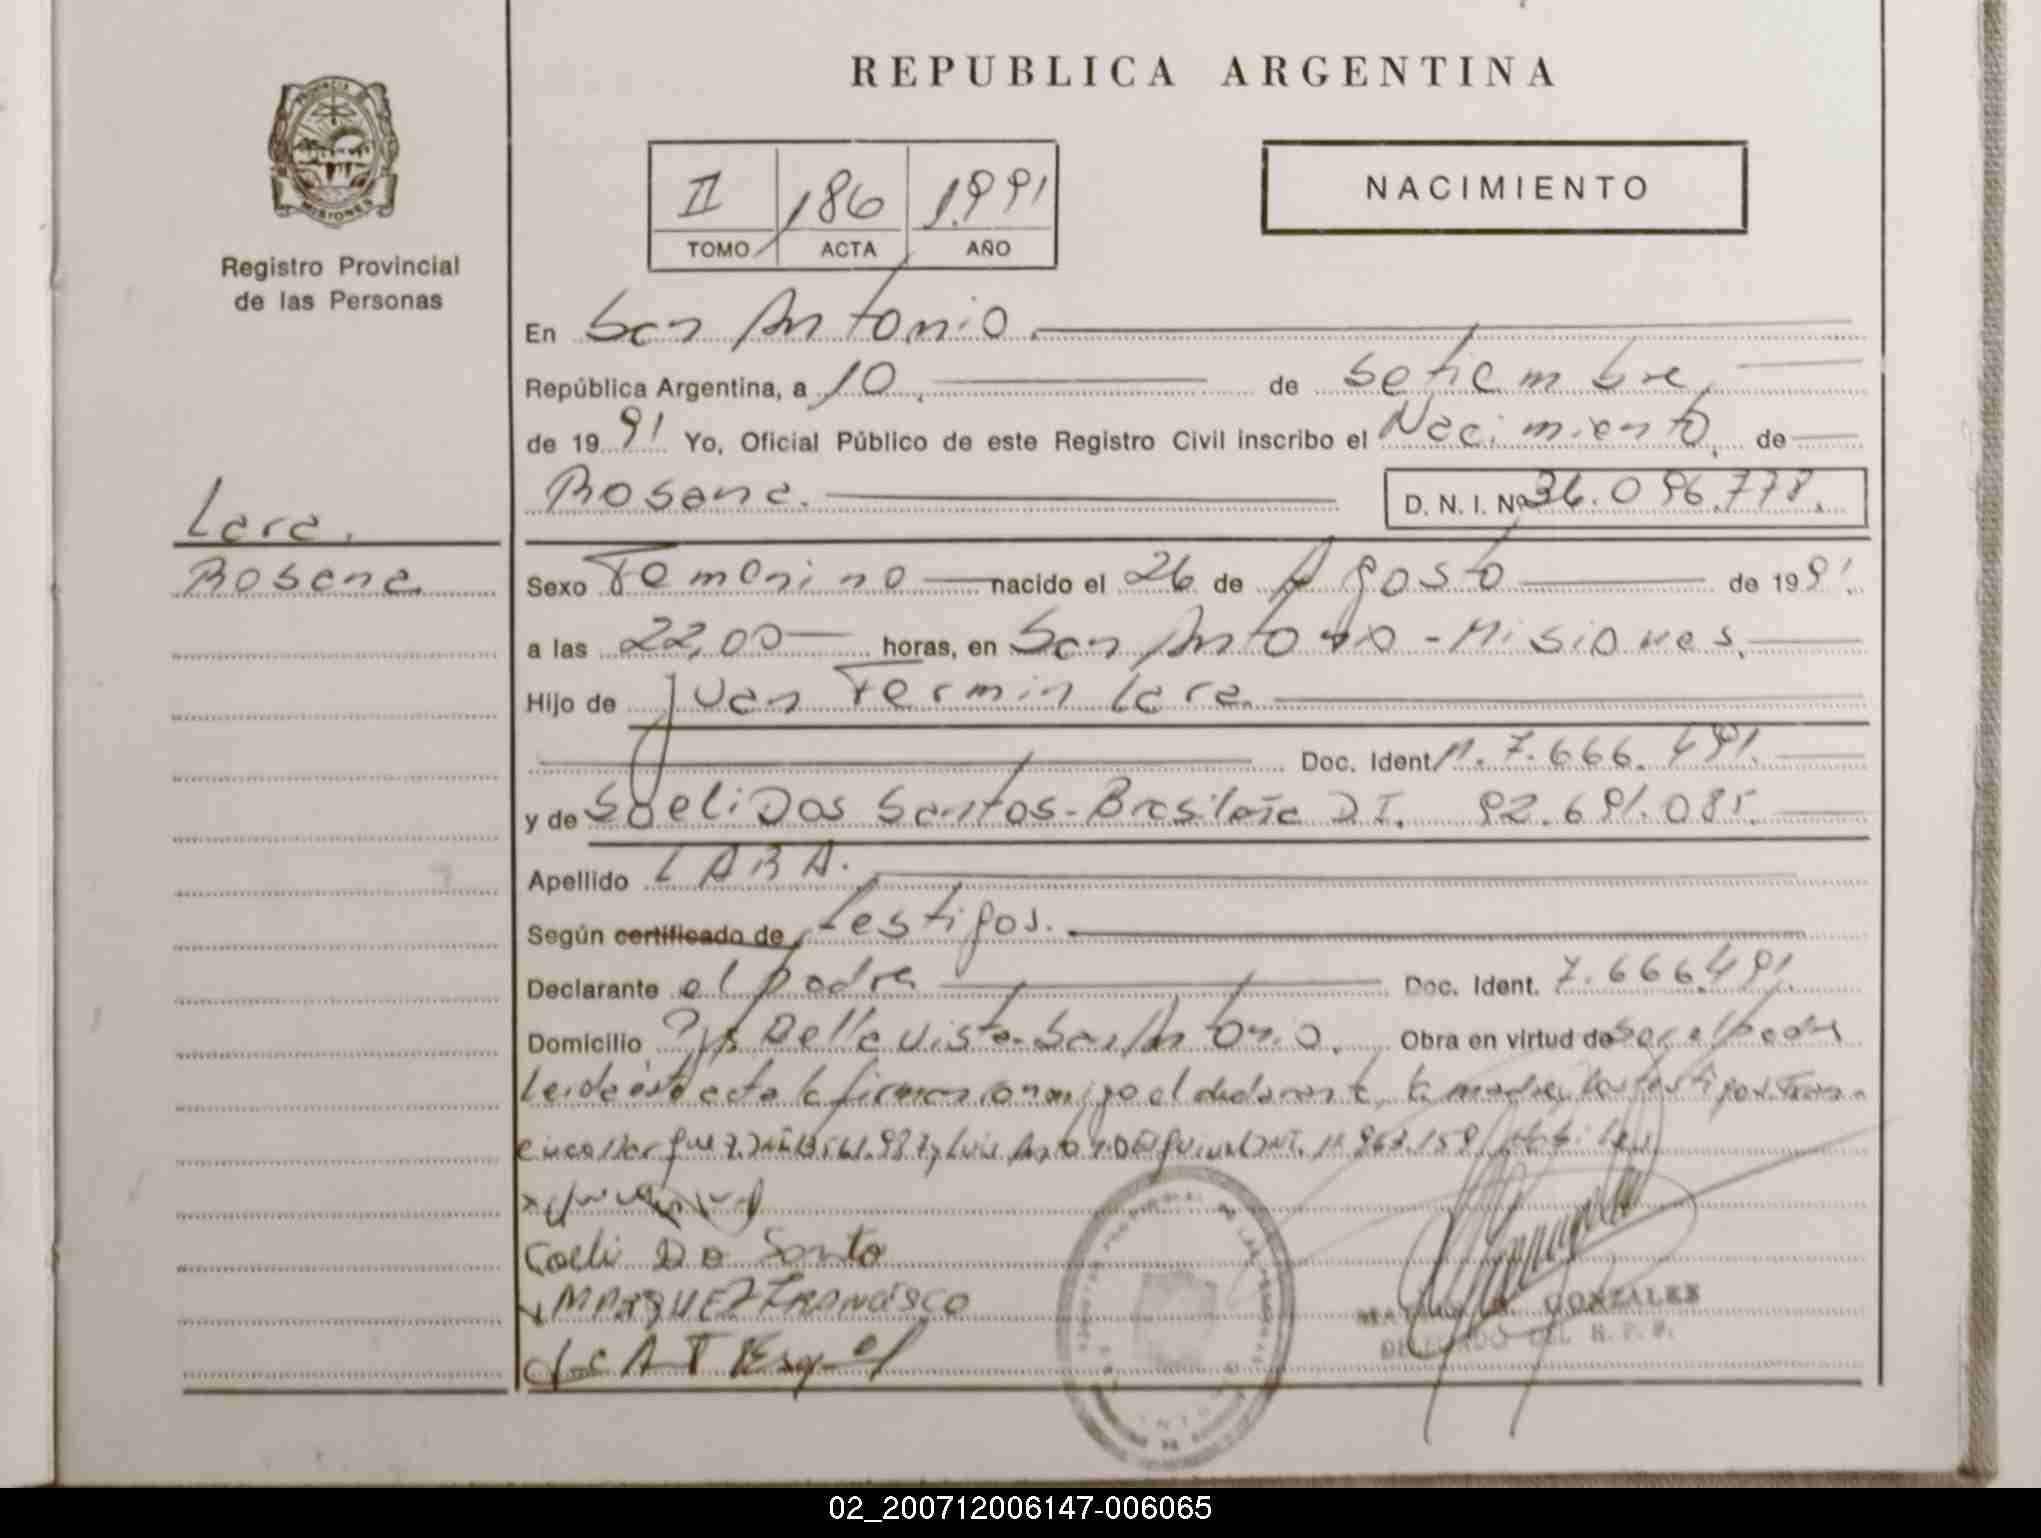 REPUBLICA ARGENTINA
PROVINCIA DE
MISIONES
Registro Provincial
de las Personas
II 186 1.991
TOMO ACTA AÑO
NACIMIENTO
En San Antonio.
República Argentina, a 10, de Setiembre,
de 1991 Yo, Oficial Público de este Registro Civil inscribo el Nacimiento, de
Rosana. D. N. I. Nº 36.096.778.
Lara.
Rosana.
Sexo Femenino nacido el 26 de Agosto de 1991.
a las 22,00 horas, en San Antonio - Misiones.
Hijo de Juan Fermin Lara.
Doc. Ident. M. 7.666.491.
y de Soeli Dos Santos - Brasileña D I. 92.691.085.
Apellido LARA.
Según certificado de testigos.
Declarante el padre Doc. Ident. 7.666.491.
Domicilio Bella Vista - San Antonio. Obra en virtud de ser el padre
Leida esta acta la firman conmigo el declarante, la madre, los testigos
Coeli Do Santo
MARQUEZ FRANCISCO
GONZALEZ
DELEGADO DEL R. P. P.
02_200712006147-006065